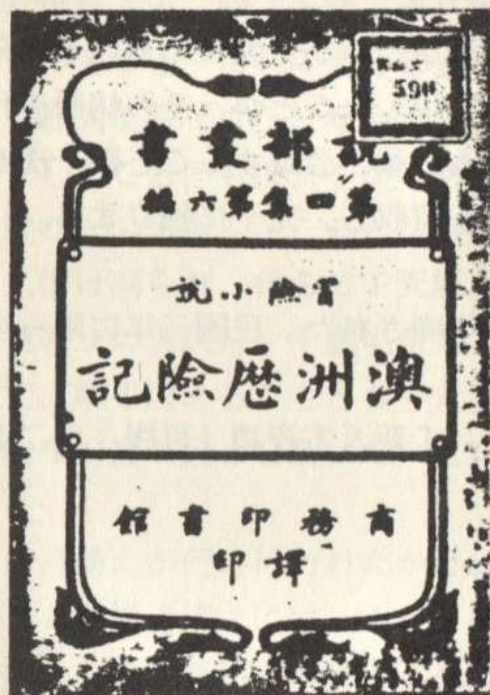 說部叢書
第四集第六編
冒險小說
澳洲歷險記
商務印書館
譯印